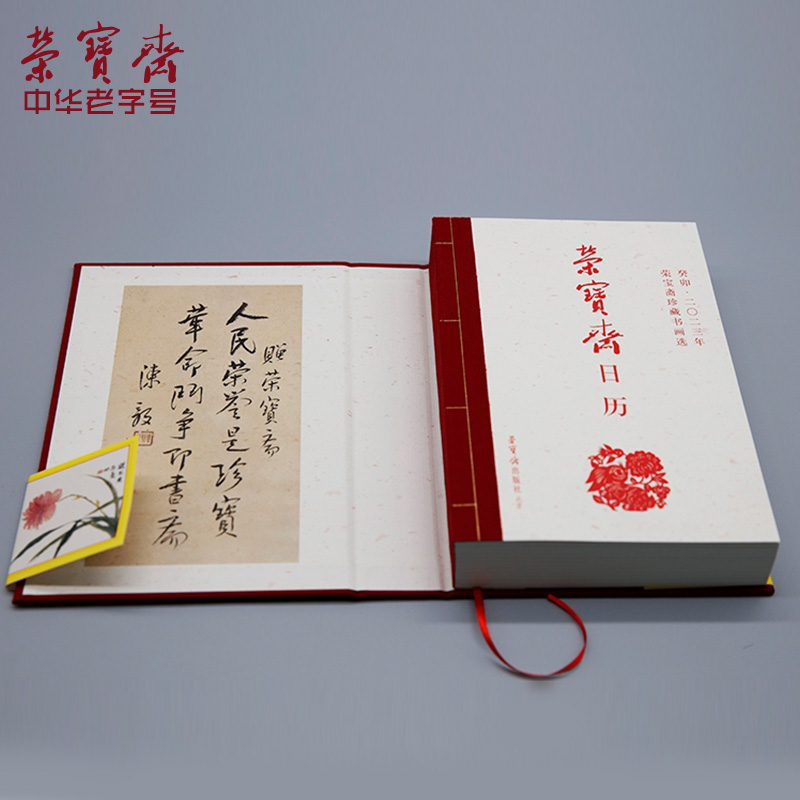 榮寶齋
中华老字号
赠荣寶斋
人民荣誉是珍寶
革命鬥争即書斋
陳毅
榮寶齋
日历
癸卯·二〇二三年
荣宝斋珍藏书画选
荣宝斋出版社